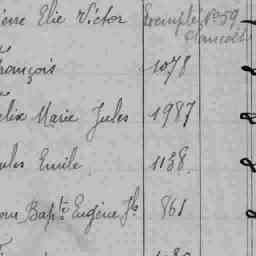 Elie Victor Exempté, No 59
rançois 1078
élix Marie Jules 1987
ules Emile 1138.
Bapte Eugène Jh 861